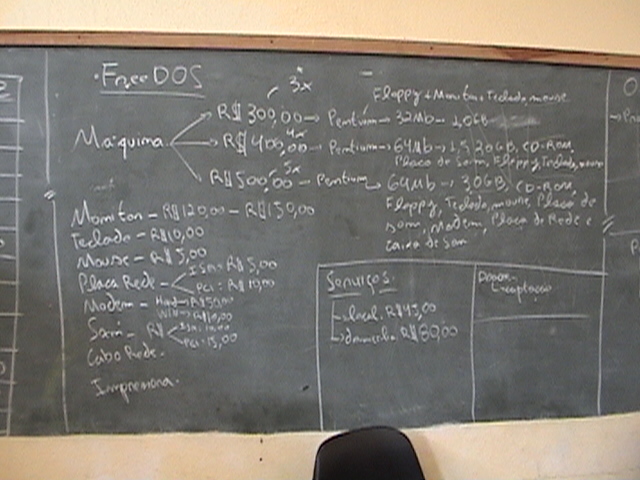 FreeDOS
3x
Floppy + Monitor + Teclado, mouse
Máquina
R$ 300,00 → Pentium → 32Mb → 1,0GB
4x
R$ 400,00 → Pentium → 64Mb → 1,5 2,0GB, CD-ROM,
Placa de Som, Floppy, Teclado, mouse
5x
R$ 500,00 → Pentium → 64Mb → 3,0GB, CD-ROM,
Floppy, Teclado, mouse, Placa de
som, Modem, Placa de Rede e
caixa de som
Monitor - R$ 120,00 - R$ 150,00
Teclado - R$ 10,00
Mouse - R$ 5,00
Placa Rede - ISA: R$ 5,00
PCI: R$ 10,00
Modem - Hard → R$ 50,00
Win → R$ 10,00
Som - R$ ISA: 10,00
PCI: 15,00
Cabo Rede -
Impressora -
Serviços
→ local R$ 45,00
R$ 60,00